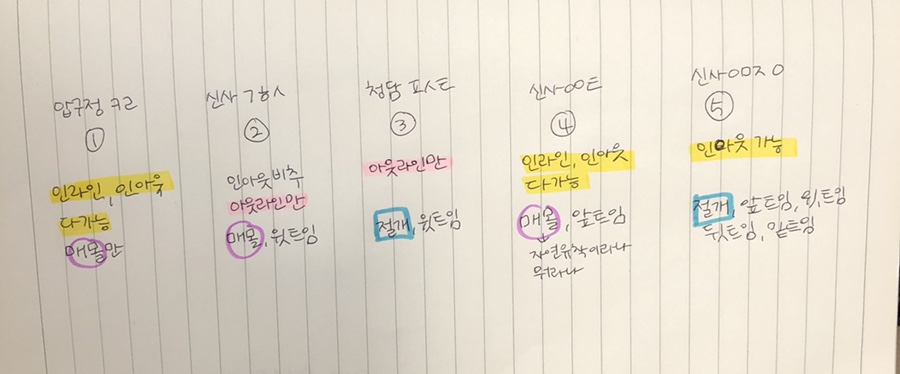 압구정 ㅋㄹ
①
인라인, 인아웃
다가능
매몰만
신사 ㄱㅎㅅ
②
인아웃비추
아웃라인만
매몰, 윗트임
청담 ㅍㅅㅌ
③
아웃라인만
절개, 윗트임
신사ㅇㅇㅌ
④
인라인, 인아웃
다가능
매몰, 앞트임
자연유착이라나
뭐라나
신사ㅇㅁㅈㅇ
⑤
인아웃 가능
절개, 앞트임, 윗트임
뒤트임, 밑트임